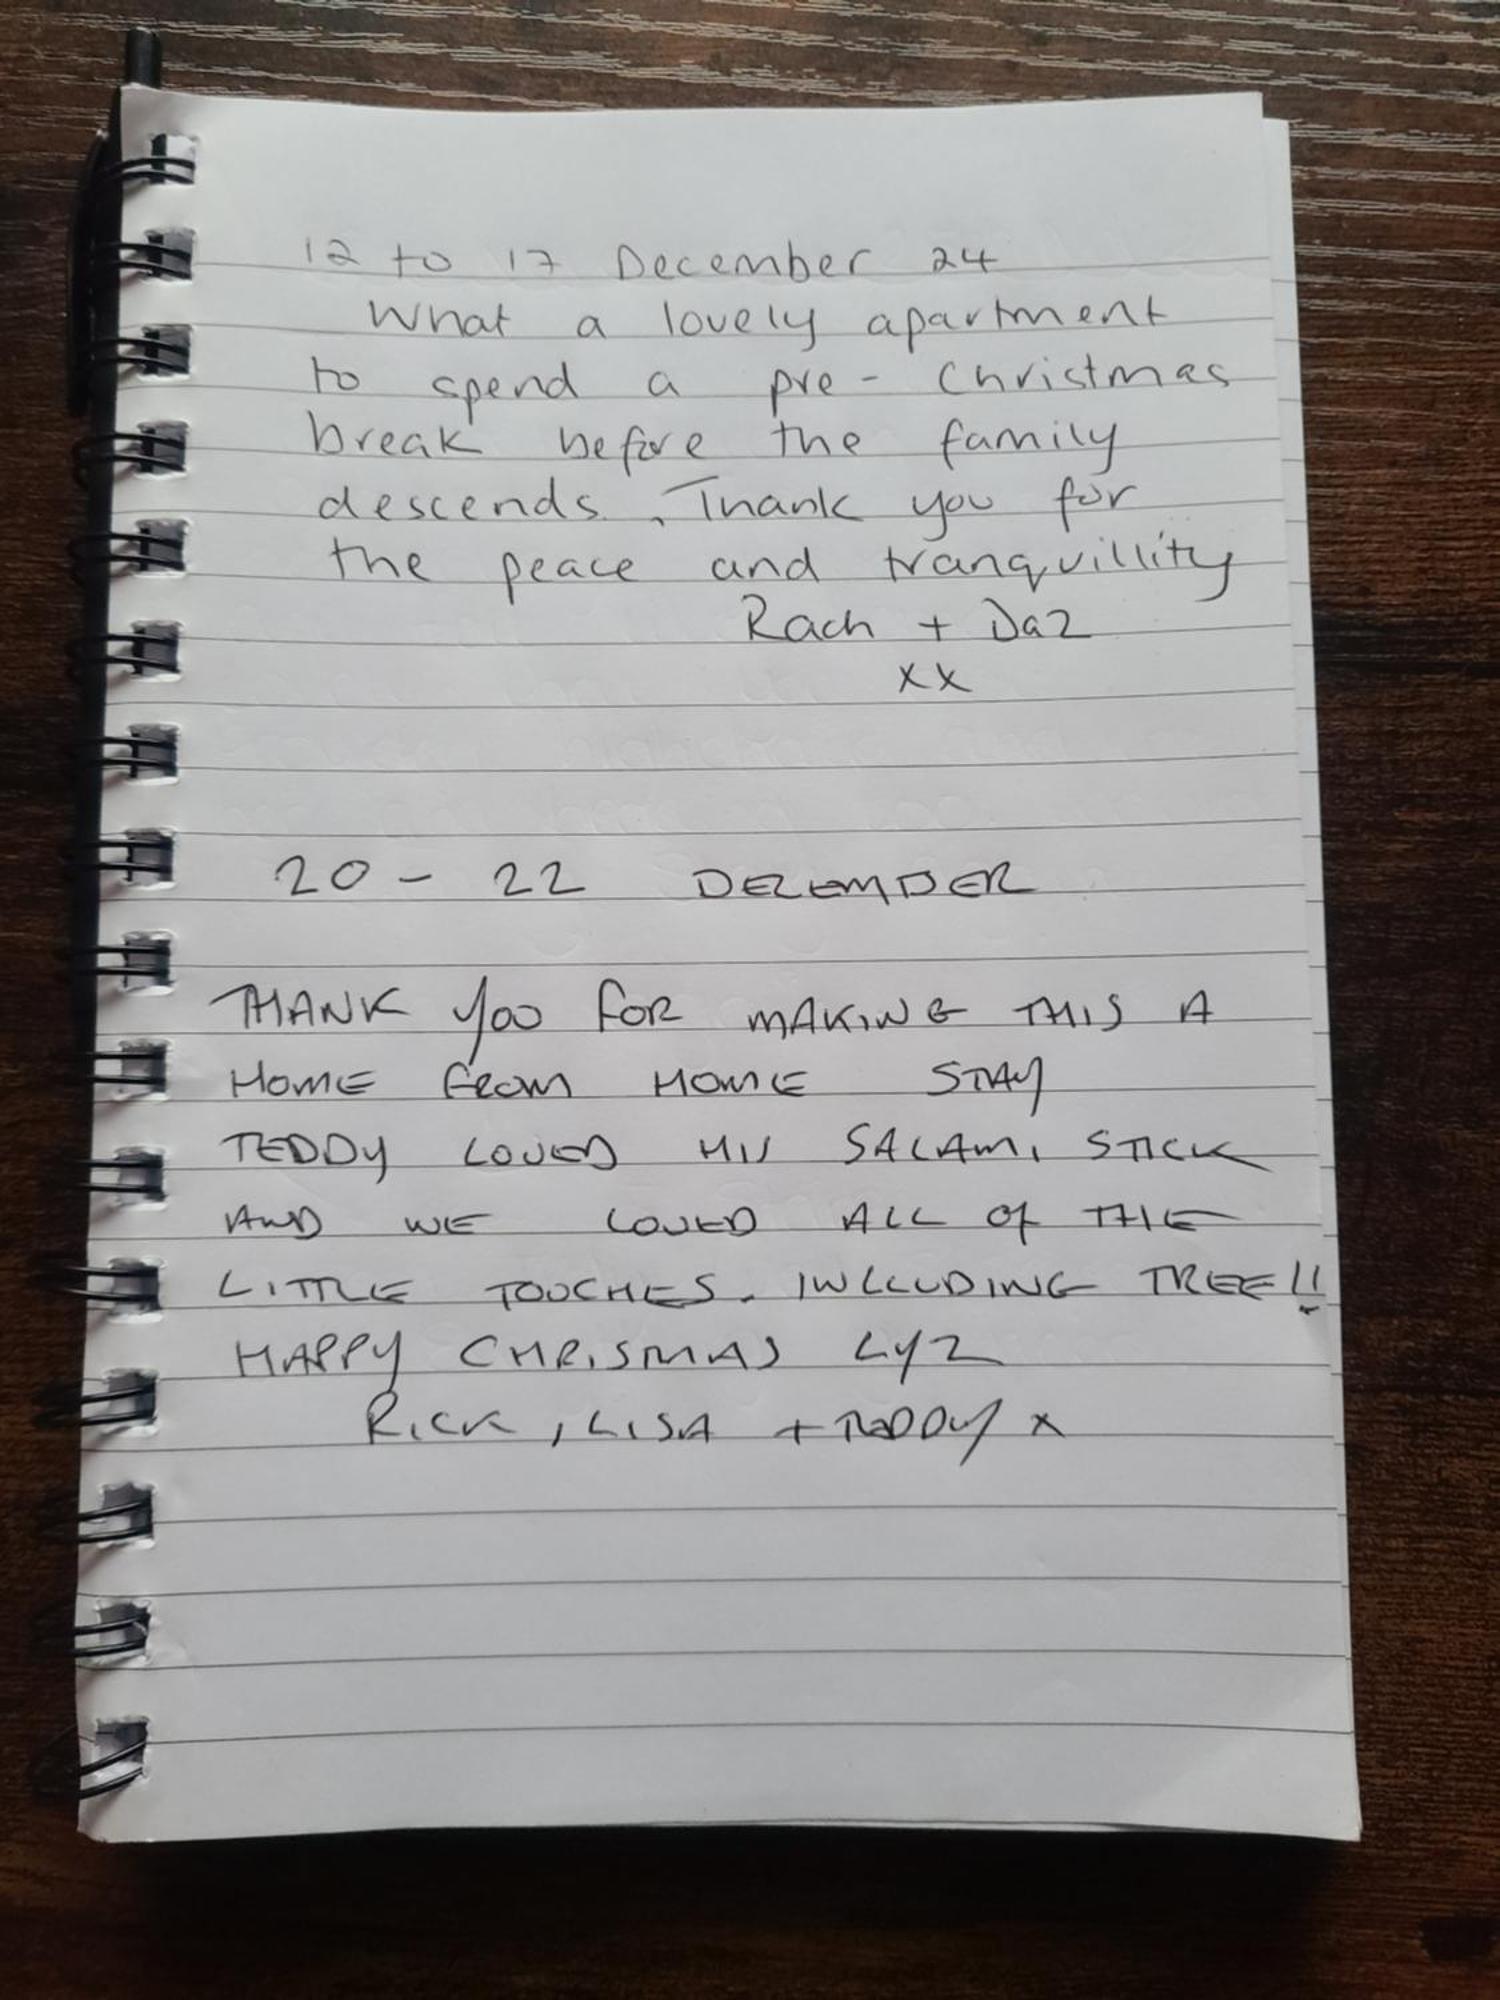 12 to 17 December 24
What a lovely apartment
to spend a pre - Christmas
break before the family
descends. Thank you for
the peace and tranquillity
Rach + Daz
xx
20 - 22 DECEMBER
THANK YOU FOR MAKING THIS A
HOME FROM HOME STAY
TEDDY LOVED HIS SALAMI STICK
AND WE LOVED ALL OF THE
LITTLE TOUCHES. INCLUDING TREE!!
HAPPY CHRISMAS LYZ
RICK, LISA + TEDDY x